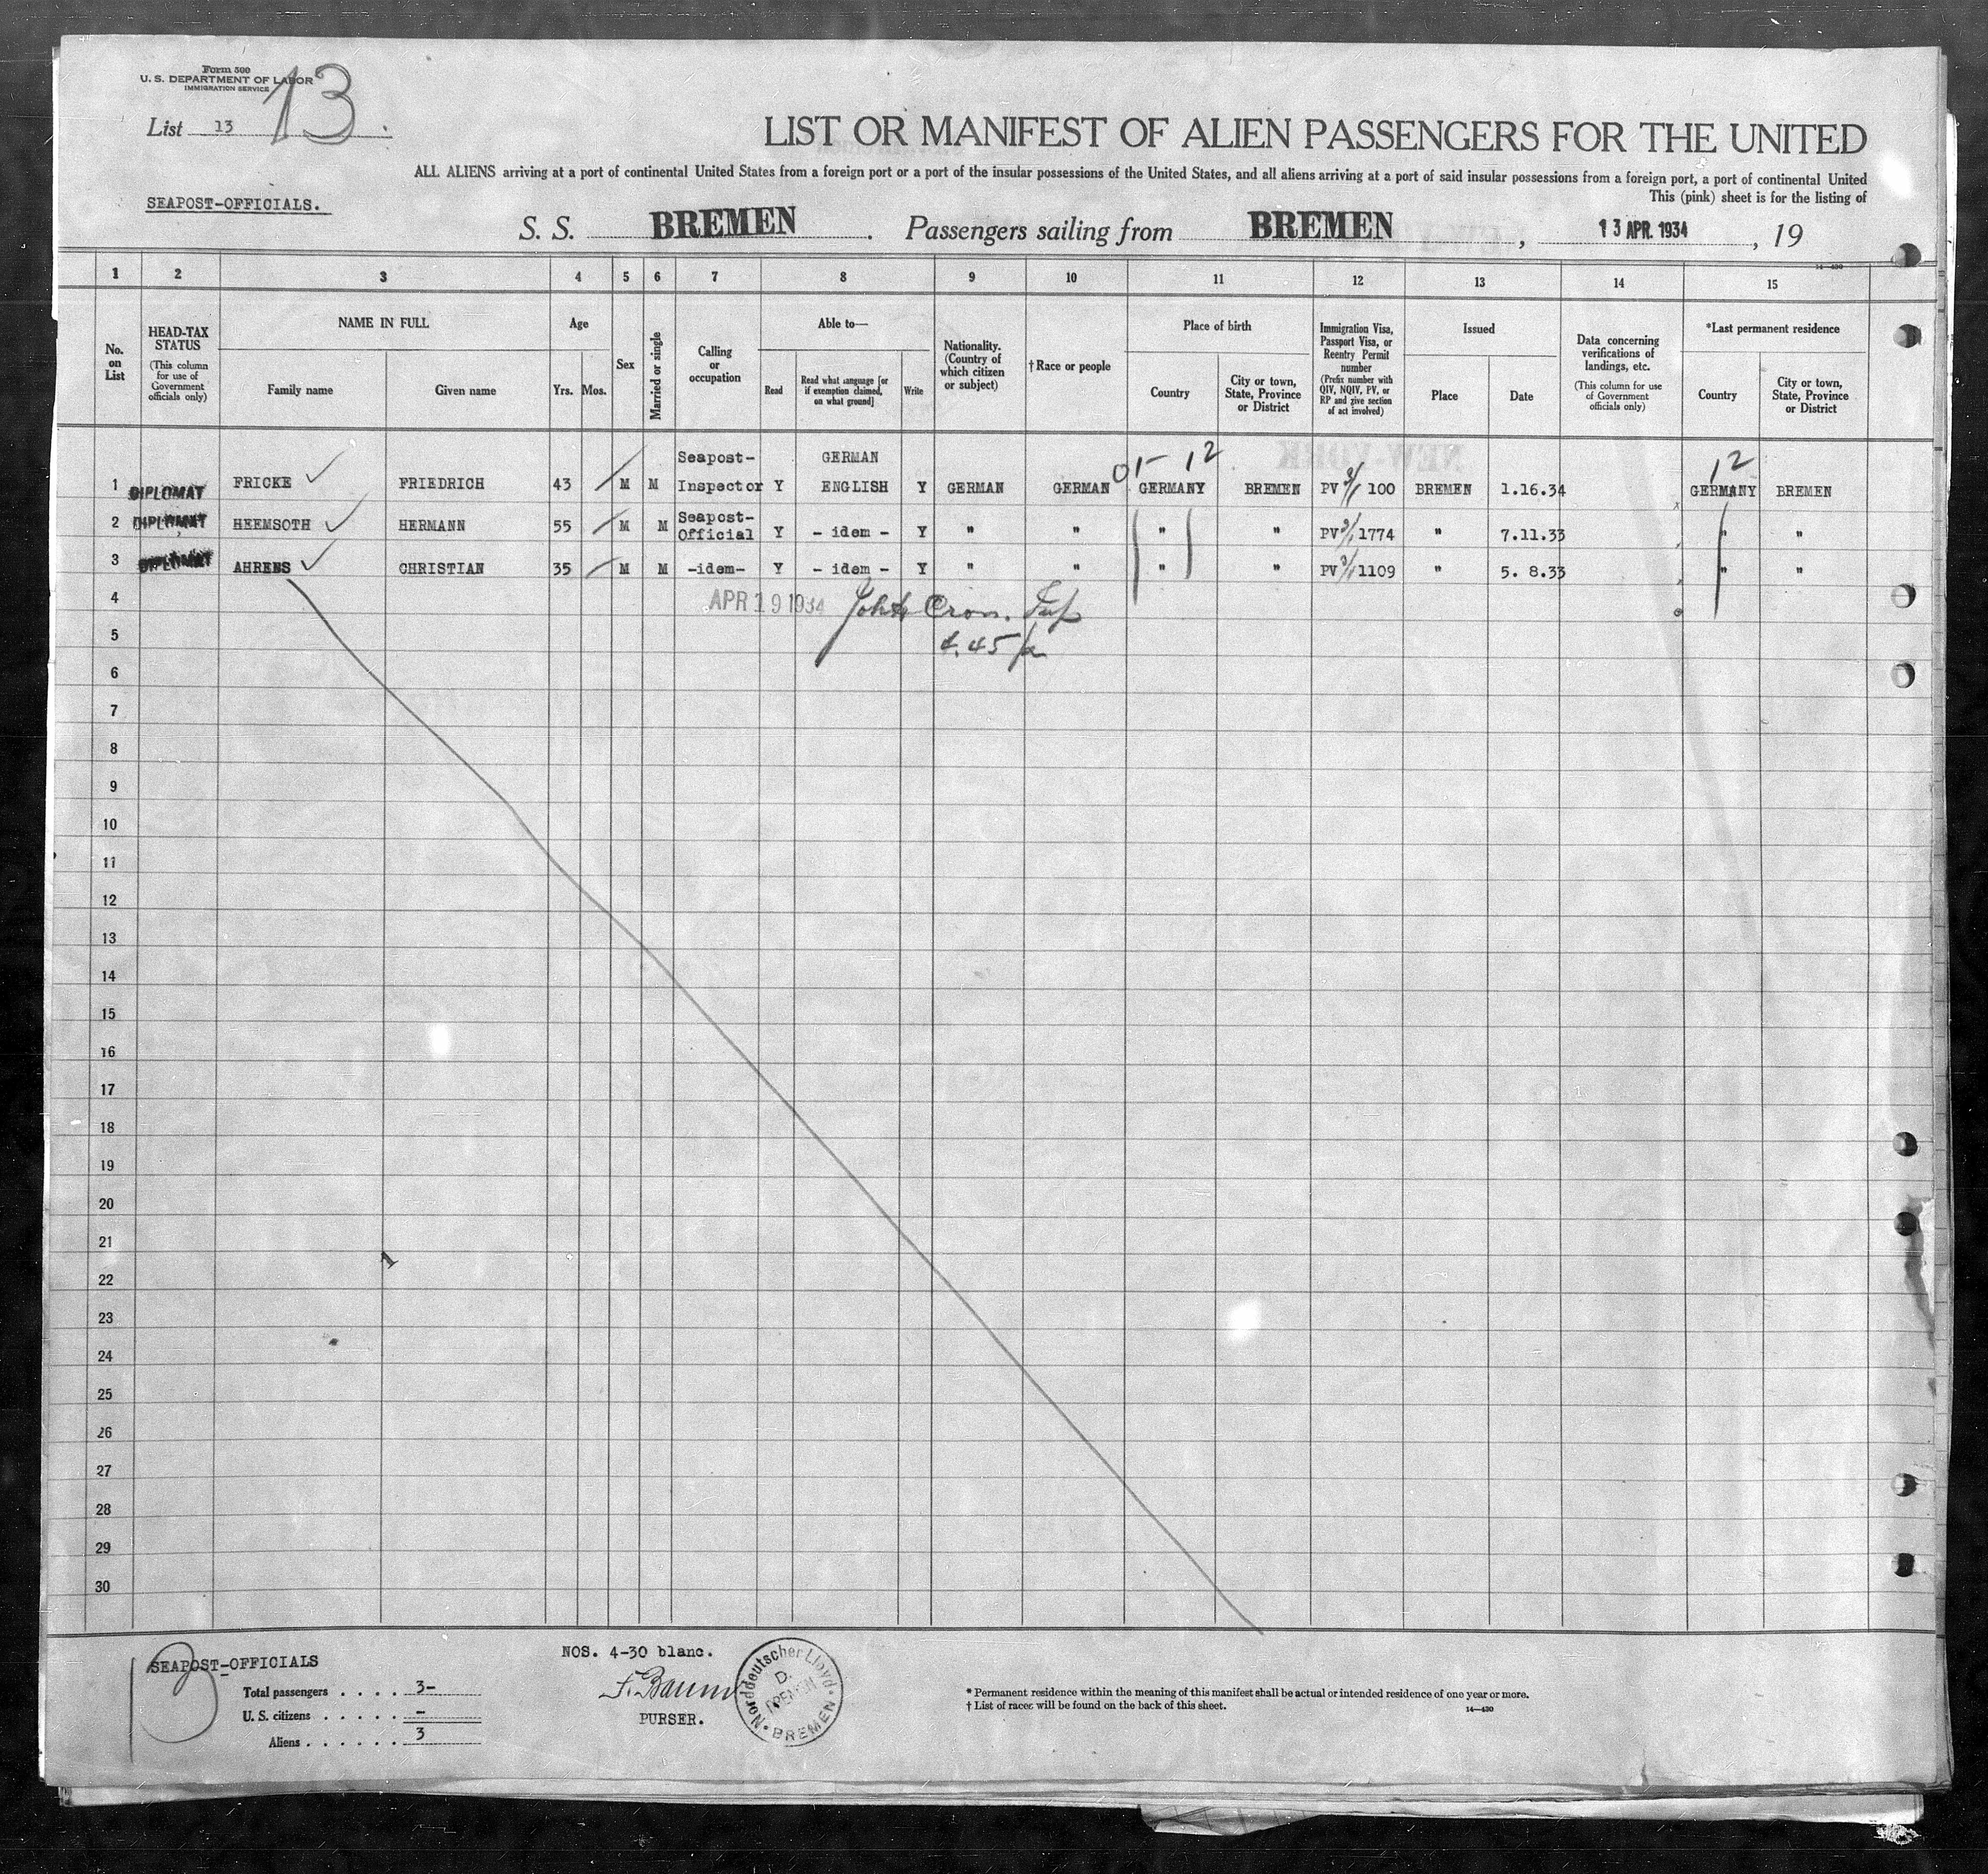 Form 500
U. S. DEPARTMENT OF LABOR
IMMIGRATION SERVICE
13
List 13
LIST OR MANIFEST OF ALIEN PASSENGERS FOR THE UNITED
ALL ALIENS arriving at a port of continental United States from a foreign port or a port of the insular possessions of the United States, and all aliens arriving at a port of said insular possessions from a foreign port, a port of continental United
This (pink) sheet is for the listing of
SEAPOST-OFFICIALS.
S. S. BREMEN. Passengers sailing from BREMEN, 13 APR. 1934, 19
14—430
1 2 3 4 5 6 7 8 9 10 11 12 13 14 15
No. on List
HEAD-TAX STATUS
(This column for use of Government officials only)
NAME IN FULL
Family name
Given name
Age
Yrs.
Mos.
Sex
Married or single
Calling or occupation
Able to—
Read
Read what language [or if exemption claimed, on what ground]
Write
Nationality. (Country of which citizen or subject)
† Race or people
Place of birth
Country
City or town, State, Province or District
Immigration Visa, Passport Visa, or Reentry Permit number
(Prefix number with QIV, NQIV, PV, or RP and give section of act involved)
Issued
Place
Date
Data concerning verifications of landings, etc.
(This column for use of Government officials only)
*Last permanent residence
Country
City or town, State, Province or District
NEW-YORK
01- 12 12
1 DIPLOMAT FRICKE FRIEDRICH 43 M M Seapost-Inspector Y GERMAN ENGLISH Y GERMAN GERMAN GERMANY BREMEN PV 3/1 100 BREMEN 1.16.34 GERMANY BREMEN
2 DIPLOMAT HEEMSOTH HERMANN 55 M M Seapost-Official Y - idem - Y " " " " PV 3/1 1774 " 7.11.33 " "
3 DIPLOMAT AHRENS CHRISTIAN 35 M M -idem- Y - idem - Y " " " " PV 3/1 1109 " 5. 8.33 " "
4 APR 19 1934 John Cron.
5 4.45
6
7
8
9
10
11
12
13
14
15
16
17
18
19
20
21
22
23
24
25
26
27
28
29
30
13
SEAPOST-OFFICIALS
Total passengers . . . . 3-
U. S. citizens . . . . . -
Aliens . . . . . . 3
NOS. 4-30 blanc.
F. Baum
PURSER.
Norddeutscher Lloyd
D. BREMEN
BREMEN
* Permanent residence within the meaning of this manifest shall be actual or intended residence of one year or more.
† List of races will be found on the back of this sheet.
14—430